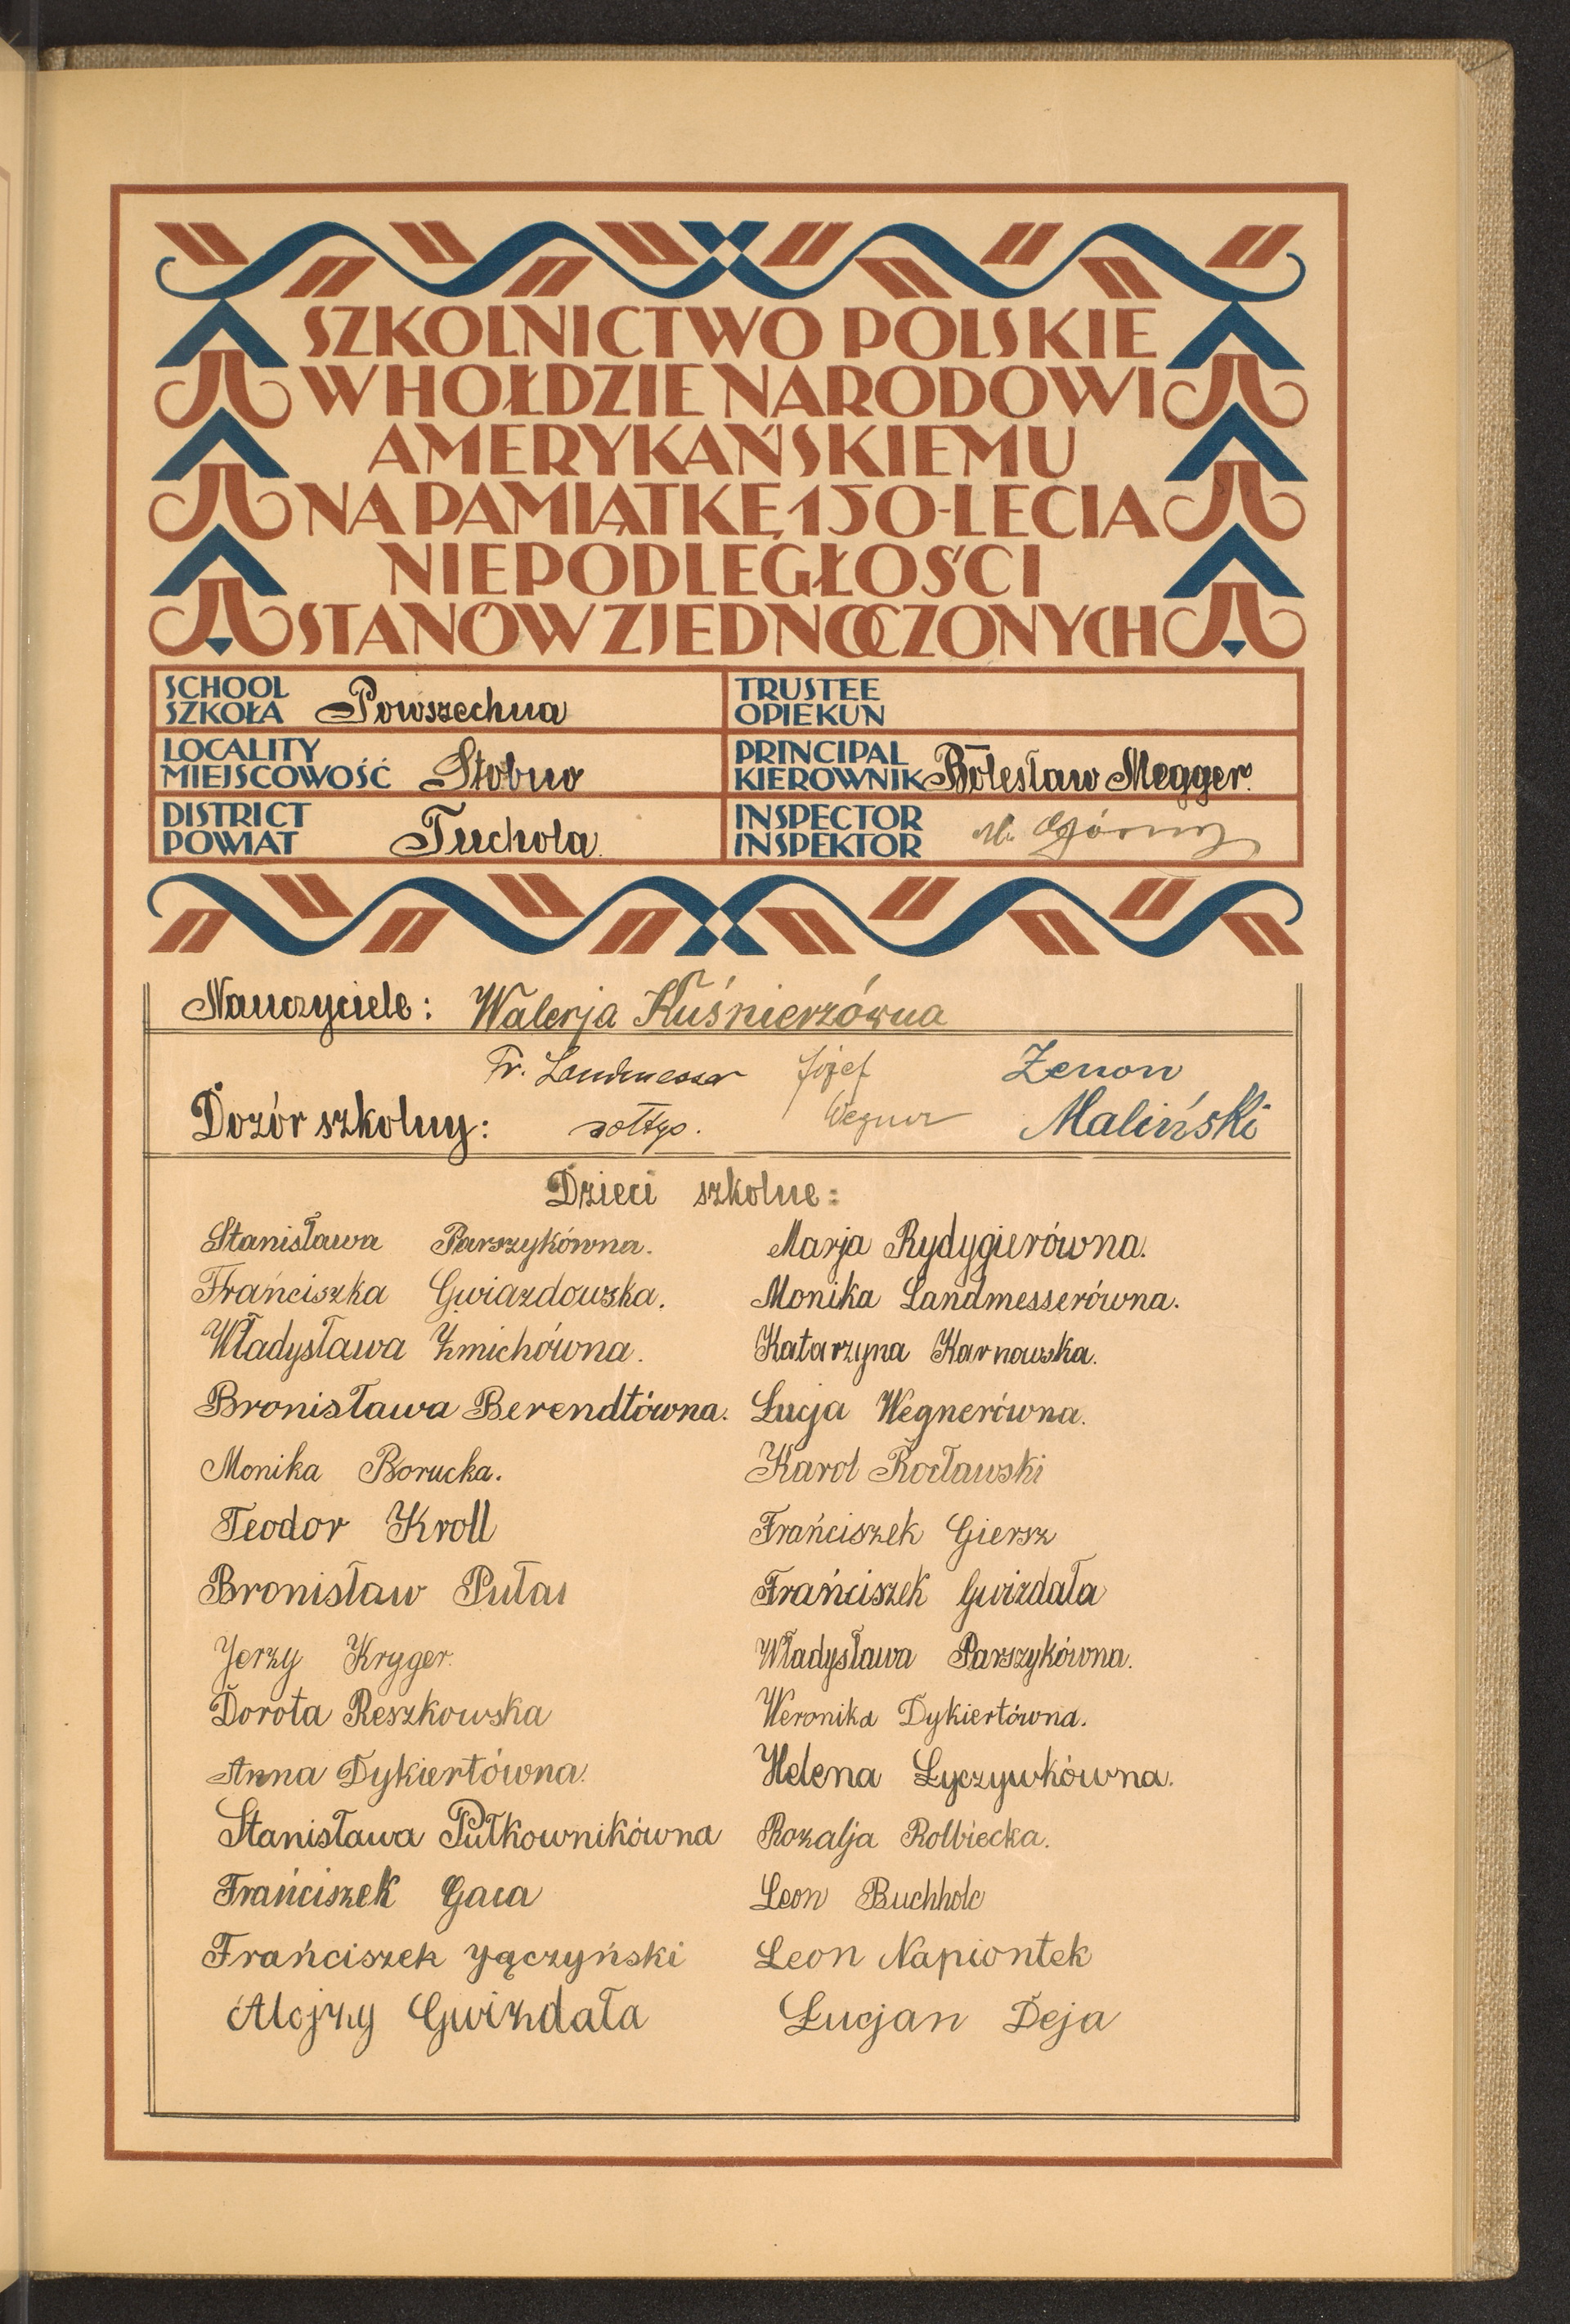 SZKOLNICTWO POLSKIE
W HOŁDZIE NARODOWI
AMERYKAŃSKIEMU
NA PAMIĄTKĘ 150-LECIA
NIEPODLEGŁOŚCI
STANÓW ZJEDNOCZONYCH
SCHOOL
SZKOŁA Powszechna
TRUSTEE
OPIEKUN
LOCALITY
MIEJSCOWOŚĆ Stobno
PRINCIPAL
KIEROWNIK Bolesław Megger.
DISTRICT
POWIAT Tuchola.
INSPECTOR
INSPEKTOR M. Górny
Nauczyciele: Walerja Kuśnierzówna
Fr. Landmesser Józef Zenon
Dozór szkolny: sołtys. Wegner Maliński
Dzieci szkolne:
Stanisława Parszykówna. Marja Rydygierówna.
Frańciszka Gwiazdowska. Monika Landmesserówna.
Władysława Żmichówna. Katarzyna Karnowska.
Bronisława Berendtówna. Łucja Wegnerówna.
Monika Borucka. Karol Rocławski
Teodor Kroll Frańciszek Giersz
Bronisław Frańciszek Gwizdała
Jerzy Krygger. Władysława Parszykówna.
Dorota Reszkowska Weronika Dykiertówna.
Anna Dykiertówna. Helena Łyczywkówna.
Stanisława Pułkownikówna Rozalja Rolbiecka.
Frańciszek Gaca Leon Buchholc
Frańciszek Jączyński Leon Napiontek
Alojzy Gwizdała Łucjan Deja